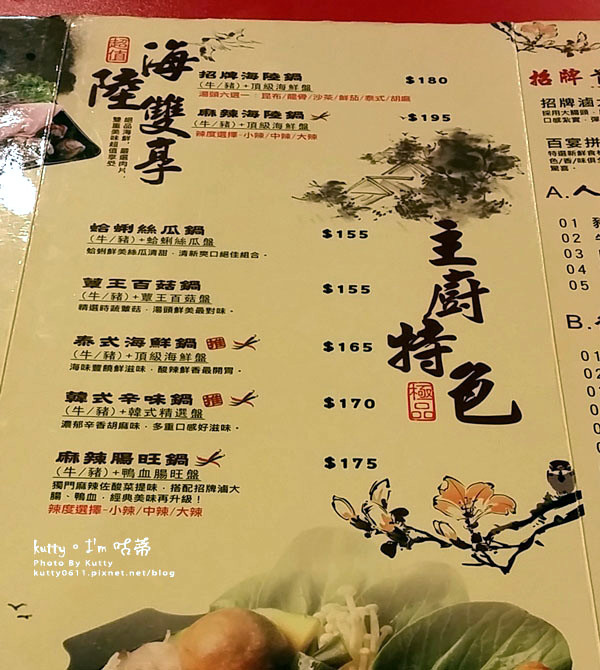 超值
海陸雙享
絕品海鮮，嚴選肉片，
雙重美味超值享受。
招牌海陸鍋 $180
(牛/豬)+頂級海鮮盤
湯頭六選一：昆布/龍骨/沙茶/鮮茄/泰式/胡麻
麻辣海陸鍋 $195
(牛/豬)+頂級海鮮盤
辣度選擇-小辣/中辣/大辣
主廚特色
極品
蛤蜊絲瓜鍋 $155
(牛/豬)+蛤蜊絲瓜盤
蛤蜊鮮美絲瓜清甜，清新爽口絕佳組合。
蕈王百菇鍋 $155
(牛/豬)+蕈王百菇盤
精選時蔬蕈菇，湯頭鮮美最對味。
泰式海鮮鍋 推 $165
(牛/豬)+頂級海鮮盤
海味豐饒鮮滋味，酸辣鮮香最開胃。
韓式辛味鍋 推 $170
(牛/豬)+韓式精選盤
濃郁辛香胡麻味，多重口感好滋味。
麻辣腸旺鍋 $175
(牛/豬)+鴨血腸旺盤
獨門麻辣佐酸菜提味，搭配招牌滷大
腸、鴨血，經典美味再升級！
辣度選擇-小辣/中辣/大辣
招牌
招牌滷大
採用大腸頭
口感紮實
百宴拼
特選新鮮食材
色/香/味俱全
驚喜。
A.人
01 豬
02 牛
03
04
05
B.
01
02
01
01
03
04
kutty。I'm 咕蒂
Photo By Kutty
kutty0611.pixnet.net/blog